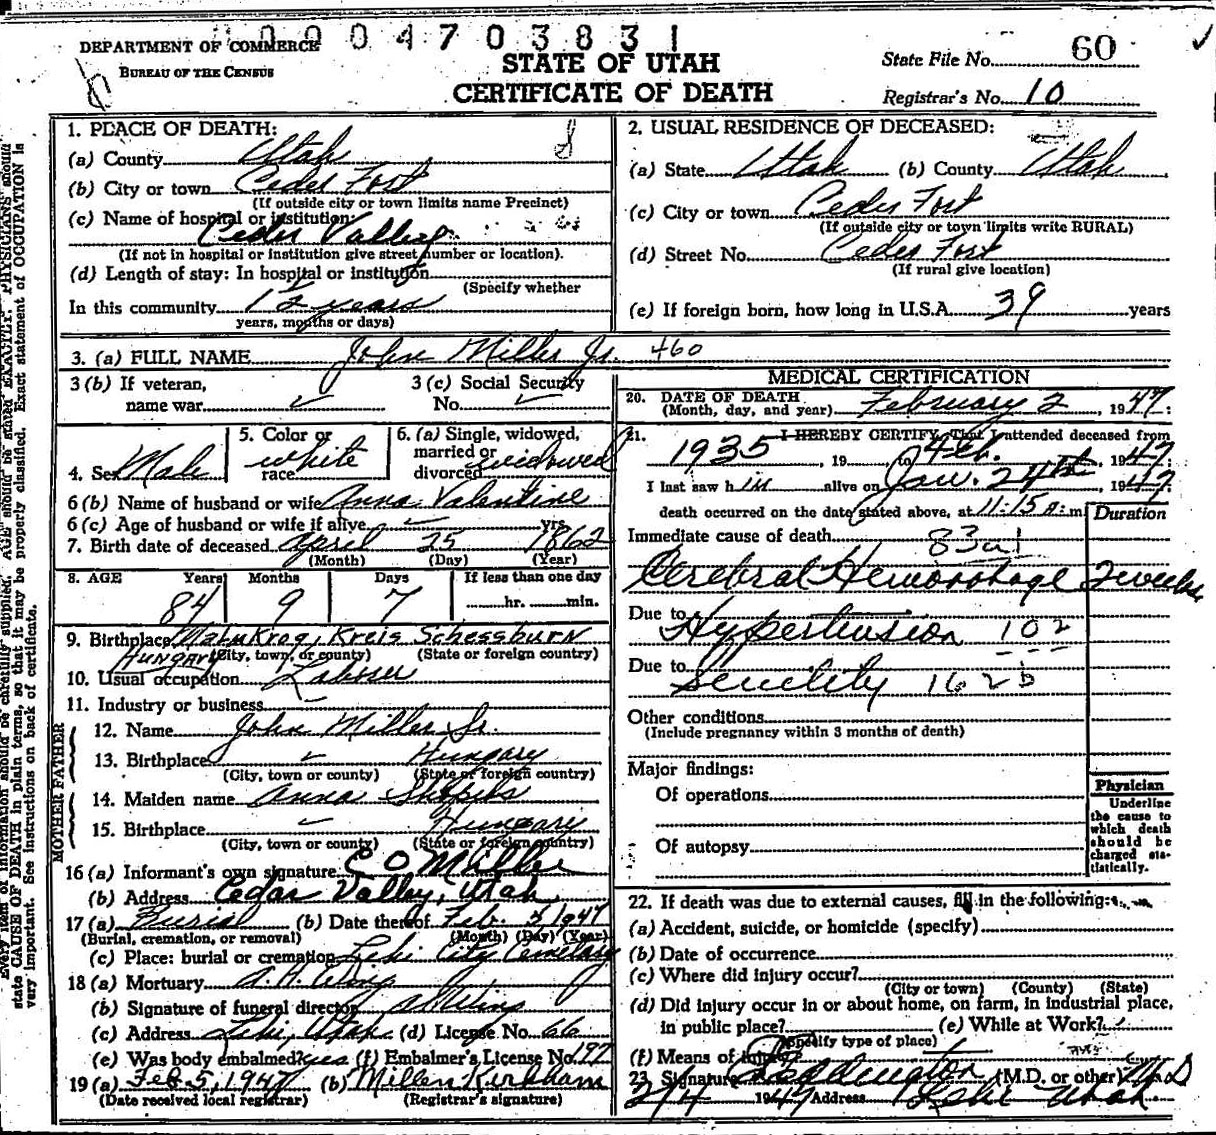 0004703831
DEPARTMENT OF COMMERCE
BUREAU OF THE CENSUS
STATE OF UTAH
CERTIFICATE OF DEATH
State File No. 60
Registrar's No. 10
1. PLACE OF DEATH:
(a) County Utah
(b) City or town Ceder Fort
(If outside city or town limits name Precinct)
(c) Name of hospital or institution:
Ceder Valley
(If not in hospital or institution give street number or location).
(d) Length of stay: In hospital or institution
(Specify whether
In this community 12 years
years, months or days)
2. USUAL RESIDENCE OF DECEASED:
(a) State Utah (b) County Utah
(c) City or town Ceder Fort
(If outside city or town limits write RURAL)
(d) Street No. Ceder Fort
(If rural give location)
(e) If foreign born, how long in U.S.A. 39 years
3. (a) FULL NAME John Miller Jr. 460
3 (b) If veteran,
name war
3 (c) Social Security
No.
4. Sex Male
5. Color or
race white
6. (a) Single, widowed,
married or
divorced widowed
6 (b) Name of husband or wife Anna Valentine
6 (c) Age of husband or wife if alive yrs.
7. Birth date of deceased April 25 1862
(Month) (Day) (Year)
8. AGE Years Months Days If less than one day
84 9 7 hr. min.
9. Birthplace Malmkrog, Kreis Schessburn
HUNGARY (City, town, or county) (State or foreign country)
10. Usual occupation Laborer
11. Industry or business
FATHER
12. Name John Miller Sr.
13. Birthplace Hungary
(City, town or county) (State or foreign country)
MOTHER
14. Maiden name Anna
15. Birthplace Hungary
(City, town or county) (State or foreign country)
16 (a) Informant's own signature C O Miller
(b) Address Cedar Valley, Utah
17 (a) Burial (b) Date thereof Feb. 5 1947
(Burial, cremation, or removal) (Month) (Day) (Year)
(c) Place: burial or cremation Lehi City Cemetary
18 (a) Mortuary A. H. Wing
(b) Signature of funeral director
(c) Address Lehi, Utah (d) License No. 66
(e) Was body embalmed? yes (f) Embalmer's License No. 197
19 (a) Feb. 5, 1947 (b) Millen Kirkham
(Date received local registrar) (Registrar's signature)
MEDICAL CERTIFICATION
20. DATE OF DEATH
(Month, day, and year) February 2, 1947.
21. I HEREBY CERTIFY, That I attended deceased from
1935, 19 to Feb. 1947
I last saw him alive on Jan. 24th, 1947
death occurred on the date stated above, at 11:15 a.m.
Duration
Immediate cause of death 83a1
Cerebral Hemorrhage 2 weeks
Due to Hypertension 102
Due to Senility 162b
Other conditions
(Include pregnancy within 3 months of death)
Major findings:
Of operations
Of autopsy
Physician
Underline
the cause to
which death
should be
charged sta-
tistically.
22. If death was due to external causes, fill in the following:
(a) Accident, suicide, or homicide (specify)
(b) Date of occurrence
(c) Where did injury occur?
(City or town) (County) (State)
(d) Did injury occur in or about home, on farm, in industrial place,
in public place? (e) While at Work?
(Specify type of place)
(f) Means of injury
23. Signature Eddington (M.D. or other) M D
2/4 1947 Address Lehi Utah
Every item of information should be carefully supplied. AGE should be stated EXACTLY. PHYSICIANS should
state CAUSE OF DEATH in plain terms, so that it may be properly classified. Exact statement of OCCUPATION is
very important. See instructions on back of certificate.